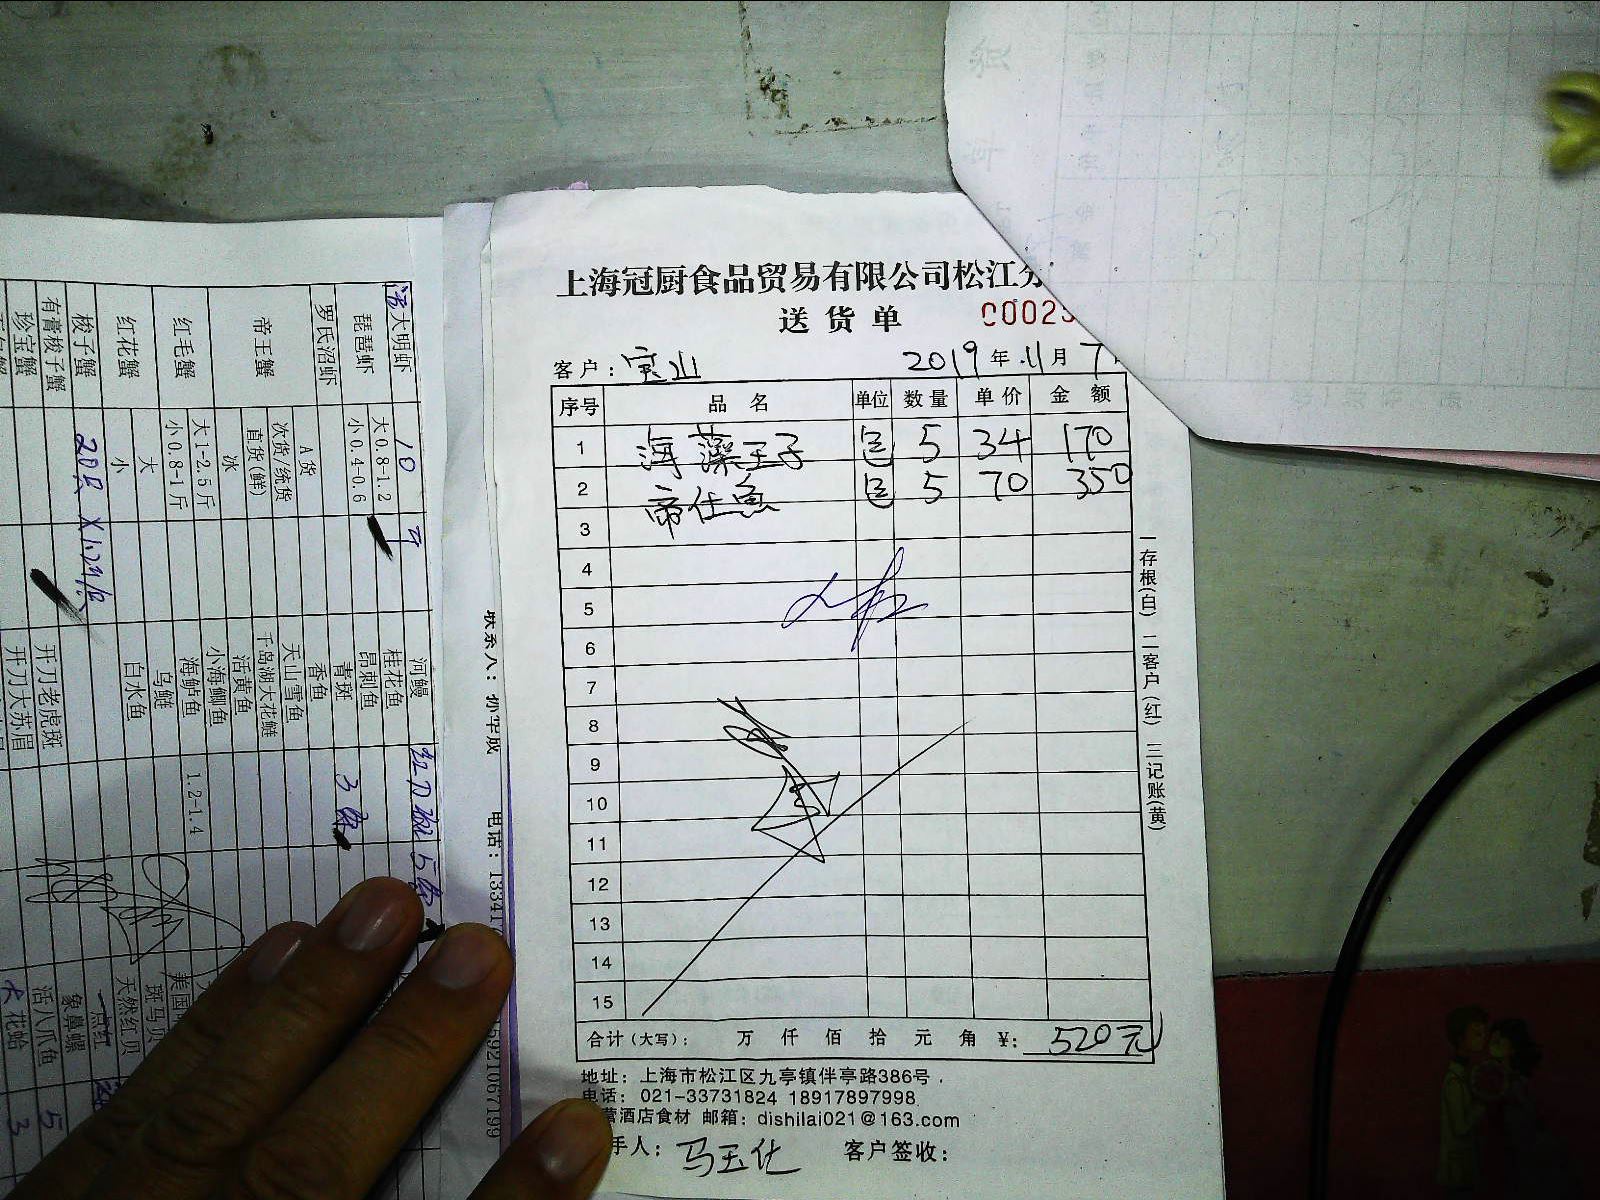 上海冠厨食品贸易有限公司松江分
送货单
C0023
客户：宝业 2019年11月7
序号 品名 单位 数量 单价 金额
1 海藻王子 包 5 34 170
2 帝仕鱼 包 5 70 350
3
4
5
6
7
8
9
10
11
12
13
14
15
合计（大写）： 万 仟 佰 拾 元 角 ¥：520元
地址：上海市松江区九亭镇伴亭路386号
电话：021-33731824 18917897998
营酒店食材 邮箱：dishilai021@163.com
手人：马玉仕 客户签收：
一存根(白) 二客户(红) 三记账(黄)
联系人：孙军成 电话：13341
15921067199
活大明虾 10
琵琶虾 大0.8-1.2 小0.4-0.6
罗氏沼虾
帝王蟹 A货 次货/统货 直货(鲜) 冰
红毛蟹 大1-2.5斤 小0.8-1斤
红花蟹 大 小
梭子蟹 20只
有膏梭子蟹
珍宝蟹
河鳗
桂花鱼
昂刺鱼
青斑 3条
香鱼
天山雪鱼
千岛湖大花鲢
活黄鱼
小海鲫鱼
海鲈鱼 1.2-1.4
乌鲢
白水鱼
开刀老虎斑
开刀大苏眉
5条
美国
斑马贝
天然红贝
象鼻螺
活八爪鱼 5
花蛤 3